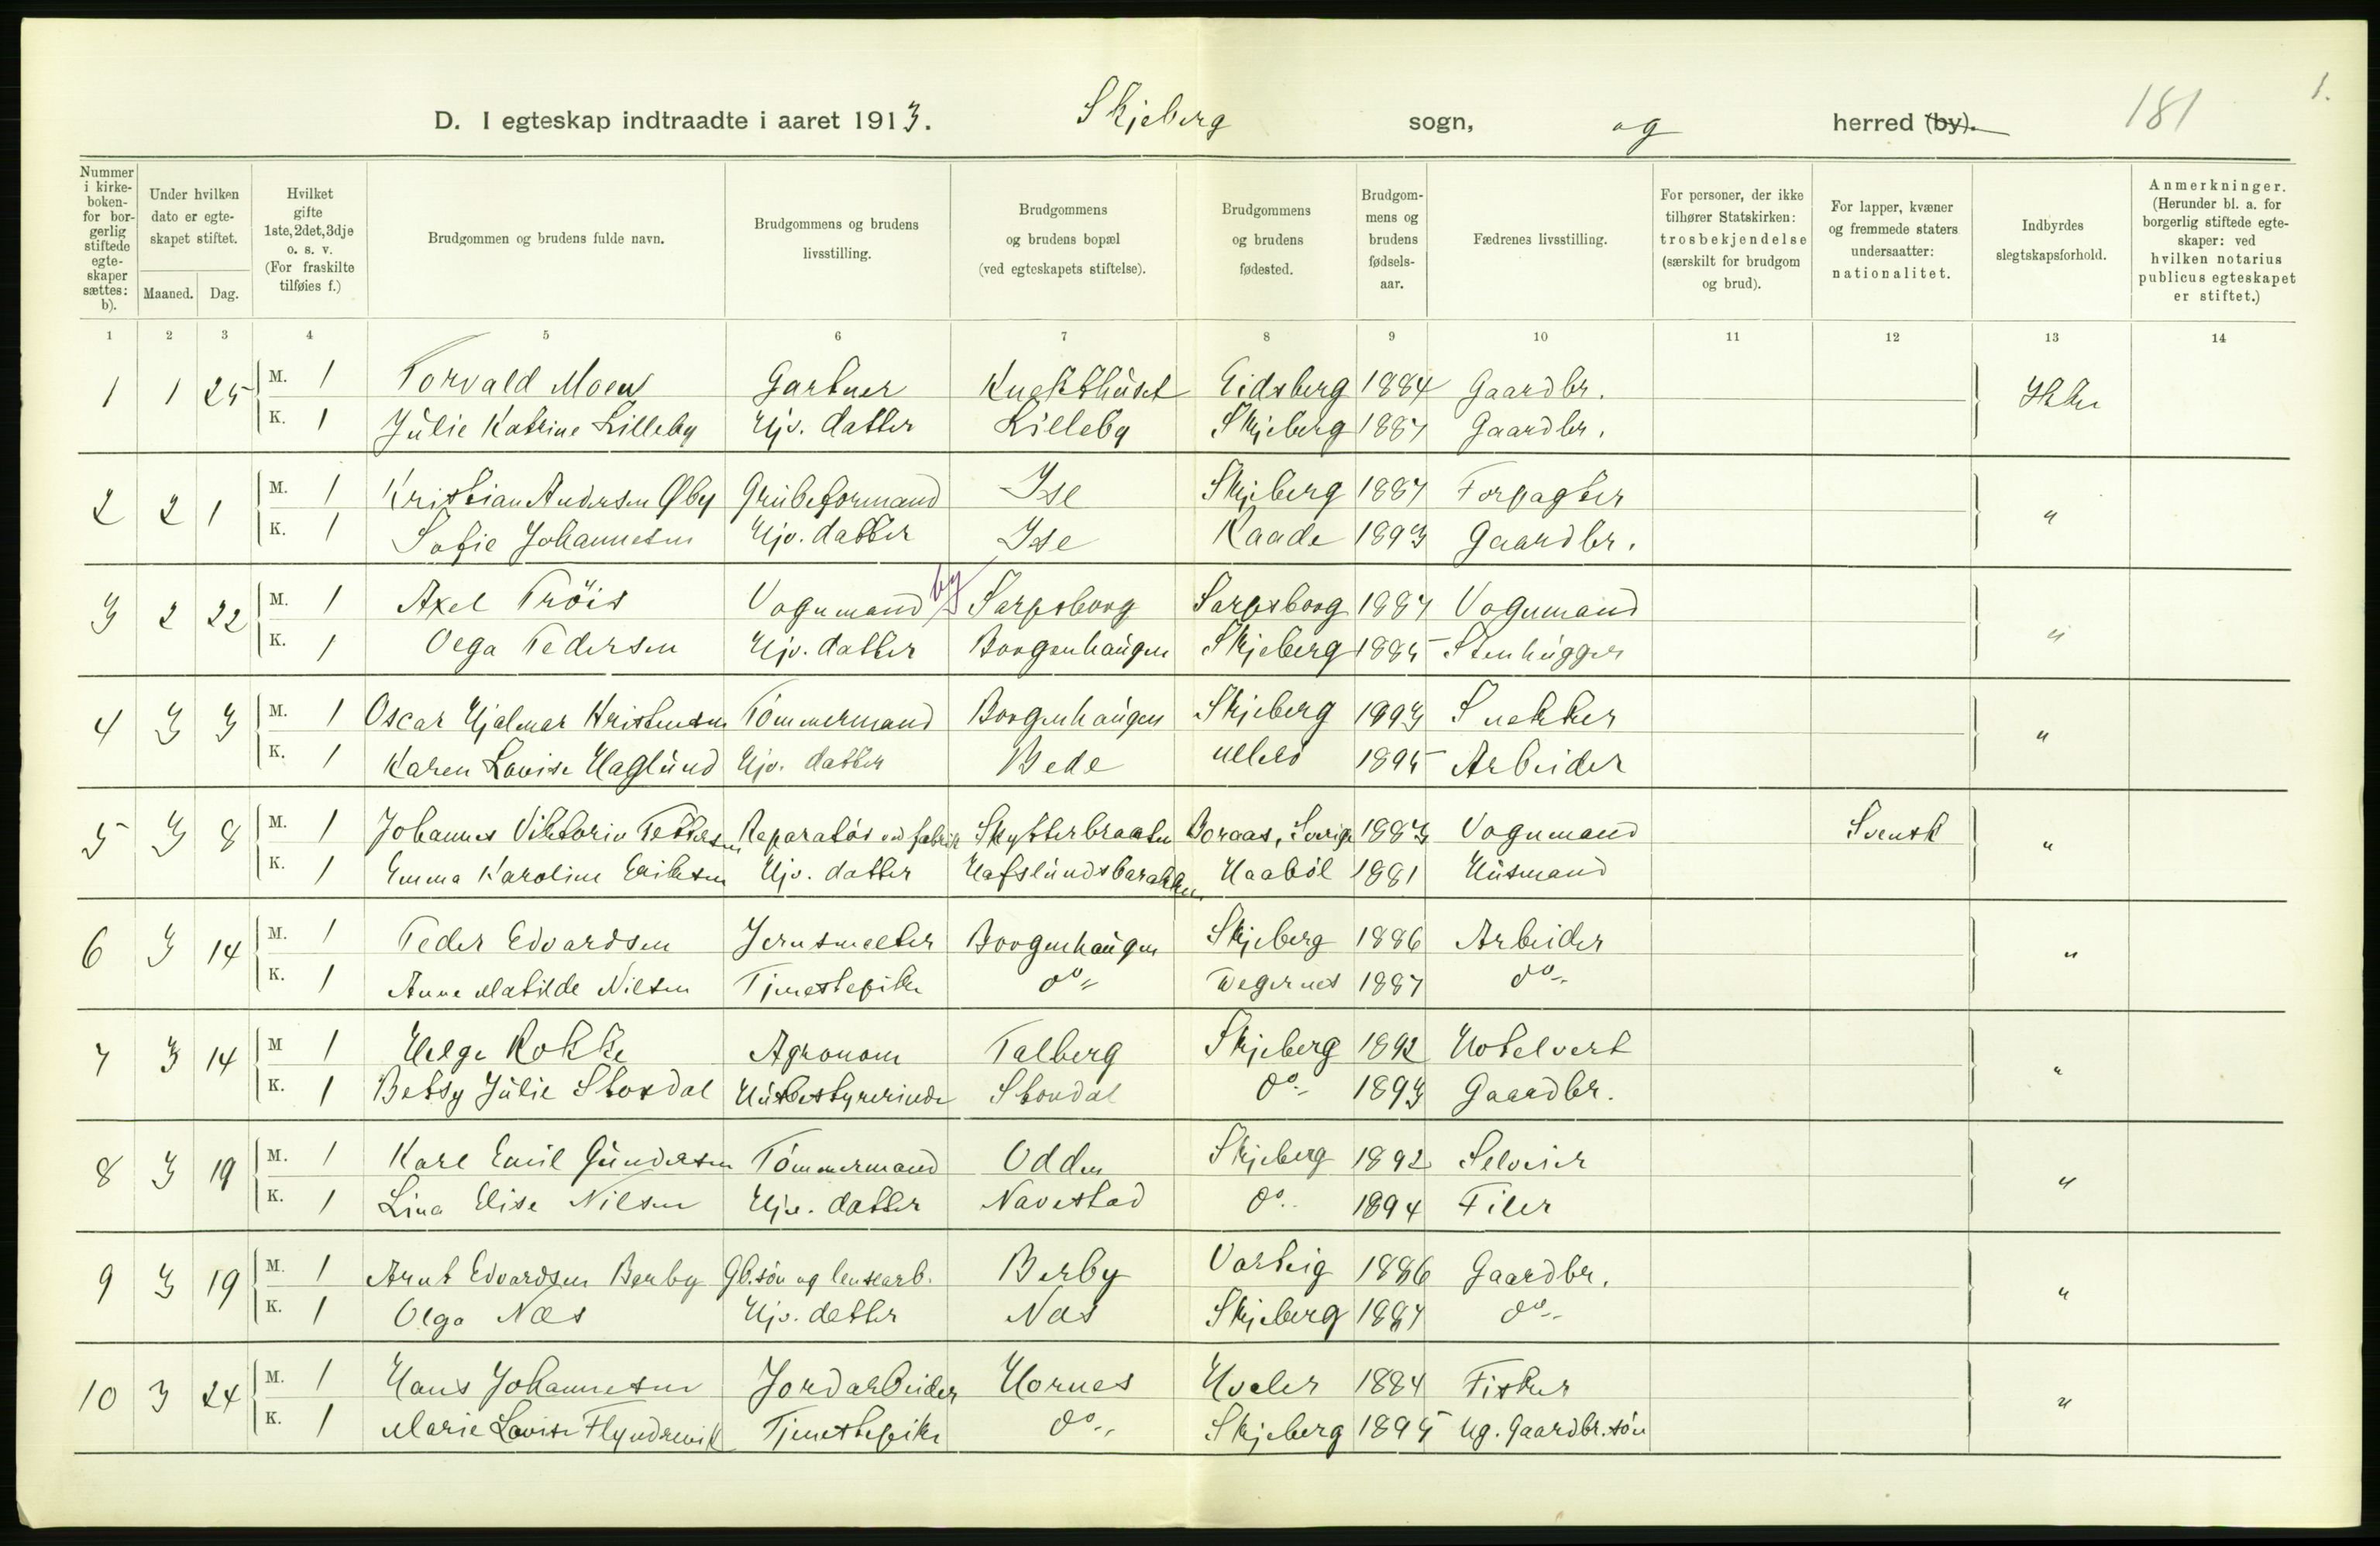 181
1.
D. I egteskap indtraadte i aaret 1913. Skjeberg sogn, og herred (by).
Nummer i kirkeboken for borgerlig stiftede egteskaper sættes: b).
Under hvilken dato er egteskapet stiftet.
Maaned. Dag.
Hvilket gifte 1ste, 2det, 3dje o. s. v. (For fraskilte tilføies f.)
Brudgommen og brudens fulde navn.
Brudgommens og brudens livsstilling.
Brudgommens og brudens bopæl (ved egteskapets stiftelse).
Brudgommens og brudens fødested.
Brudgommens og brudens fødselsaar.
Fædrenes livsstilling.
For personer, der ikke tilhører Statskirken: trosbekjendelse (særskilt for brudgom og brud).
For lapper, kvæner og fremmede staters undersaatter: nationalitet.
Indbyrdes slegtskapsforhold.
Anmerkninger. (Herunder bl. a. for borgerlig stiftede egteskaper: ved hvilken notarius publicus egteskapet er stiftet.)
1 2 3 4 5 6 7 8 9 10 11 12 13 14
1 1 25 M. 1 Torvald Moen Gartner Knækthuset Eidsberg 1884 Gaardbr. Ikke
K. 1 Julie Katrine Lilleby Hjv. datter Lilleby Skjeberg 1887 Gaardbr.
2 2 1 M. 1 Kristian Andersen Øby Grubeformand Ise Skjeberg 1887 Forpagter "
K. 1 Sofie Johannesen Hjv. datter Ise Raade 1893 Gaardbr.
3 2 22 M. 1 Axel Fröis Vognmand by Sarpsborg Sarpsborg 1887 Vognmand "
K. 1 Olga Pedersen Hjv. datter Borgenhaugen Skjeberg 1885 Stenhugger
4 3 3 M. 1 Oscar Hjalmar Kristensen Tömmermand Borgenhaugen Skjeberg 1993 Snekker "
K. 1 Karen Lovise Haglund Hjv. datter Bede 1895 Arbeider
5 3 8 M. 1 Johannes Viktorin Pettersen Reparatör ved fabrik Skytterbraaten Boraas, Sverige 1883 Vognmand Svensk "
K. 1 Emma Karoline Eriksen Hjv. datter Hafslundsbarakken Haaböl 1881 Husmand
6 3 14 M. 1 Peder Edvardsen Jernsmelter Borgenhaugen Skjeberg 1886 Arbeider "
K. 1 Anne Matilde Nilsen Tjenestepike do " Degernes 1887 do "
7 3 14 M 1 Helge Rokke Agronom Talberg Skjeberg 1892 Hotelvert "
K. 1 Betsy Julie Stordal Husbestyrerinde Stordal do " 1893 Gaardbr.
8 3 19 M. 1 Karl Emil Gundersen Tömmermand Odden Skjeberg 1892 Selveier "
K. 1 Lina Elise Nilsen Hjv. datter Navestad do " 1894 Filer
9 3 19 M. 1 Arnt Edvardsen Berby Gb.sön og lensearb. Berby Varteig 1886 Gaardbr. "
K. 1 Olga Næs Hjv. datter Næs Skjeberg 1887 do "
10 3 24 M. 1 Hans Johannesen Jordarbeider Hornes Hvaler 1884 Fisker "
K. 1 Marie Lovise Flyndrevik Tjenestepike do " Skjeberg 1895 Ug. Gaardbr.sön